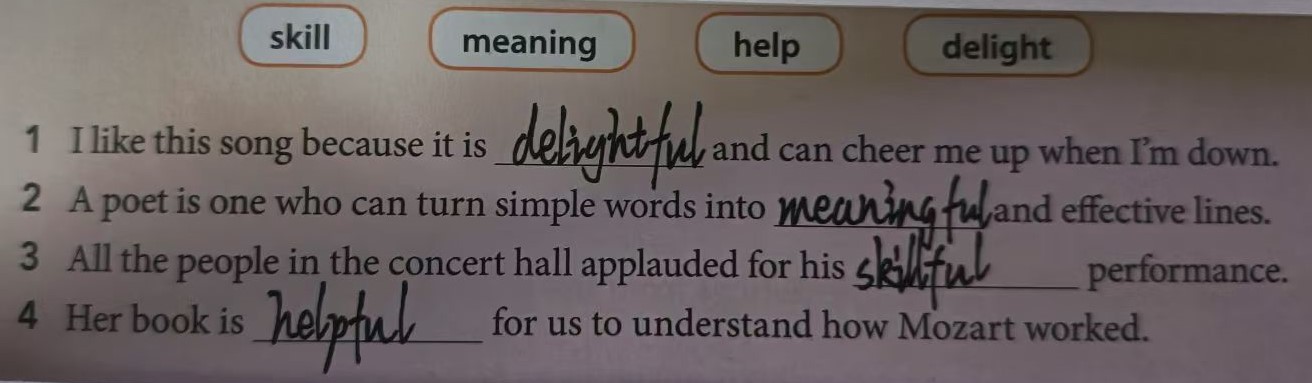 skill meaning help delight
1 I like this song because it is delightful and can cheer me up when I'm down.
2 A poet is one who can turn simple words into meaningful and effective lines.
3 All the people in the concert hall applauded for his skillful performance.
4 Her book is helpful for us to understand how Mozart worked.